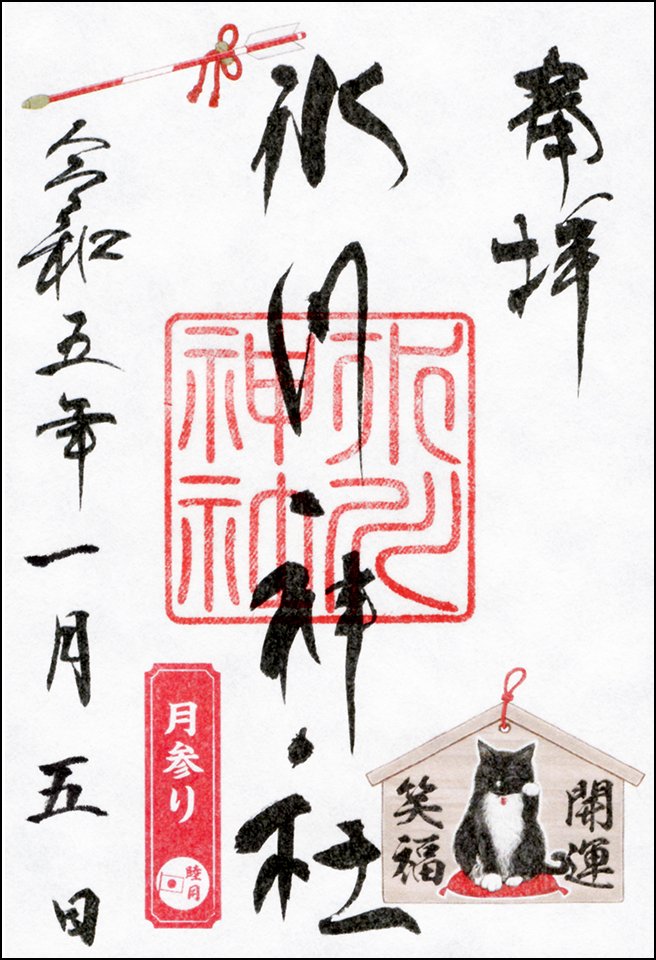 奉拝
氷川神社
氷川
神社
令和五年一月五日
月参り
睦月
開運
笑福